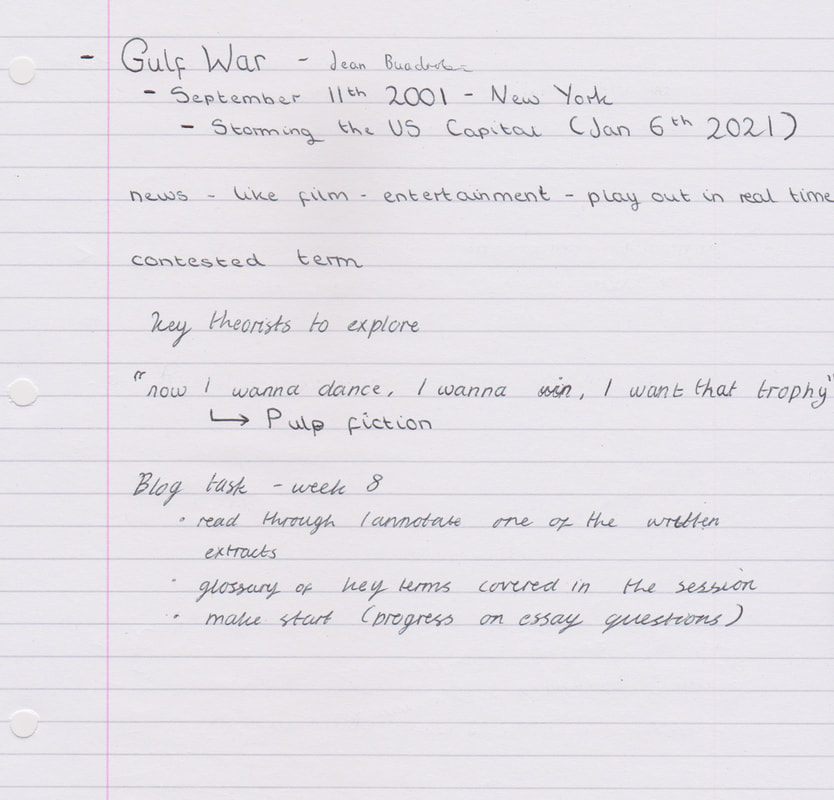 - Gulf War - Jean
- September 11th 2001 - New York
- Storming the US Capital (Jan 6th 2021)
news - like film - entertainment - play out in real time
contested term
key theorists to explore
"now I wanna dance, I wanna win, I want that trophy"
↳ Pulp fiction
Blog task - week 8
• read through / annotate one of the written
extracts
• glossary of key terms covered in the session
• make start (progress on essay questions)